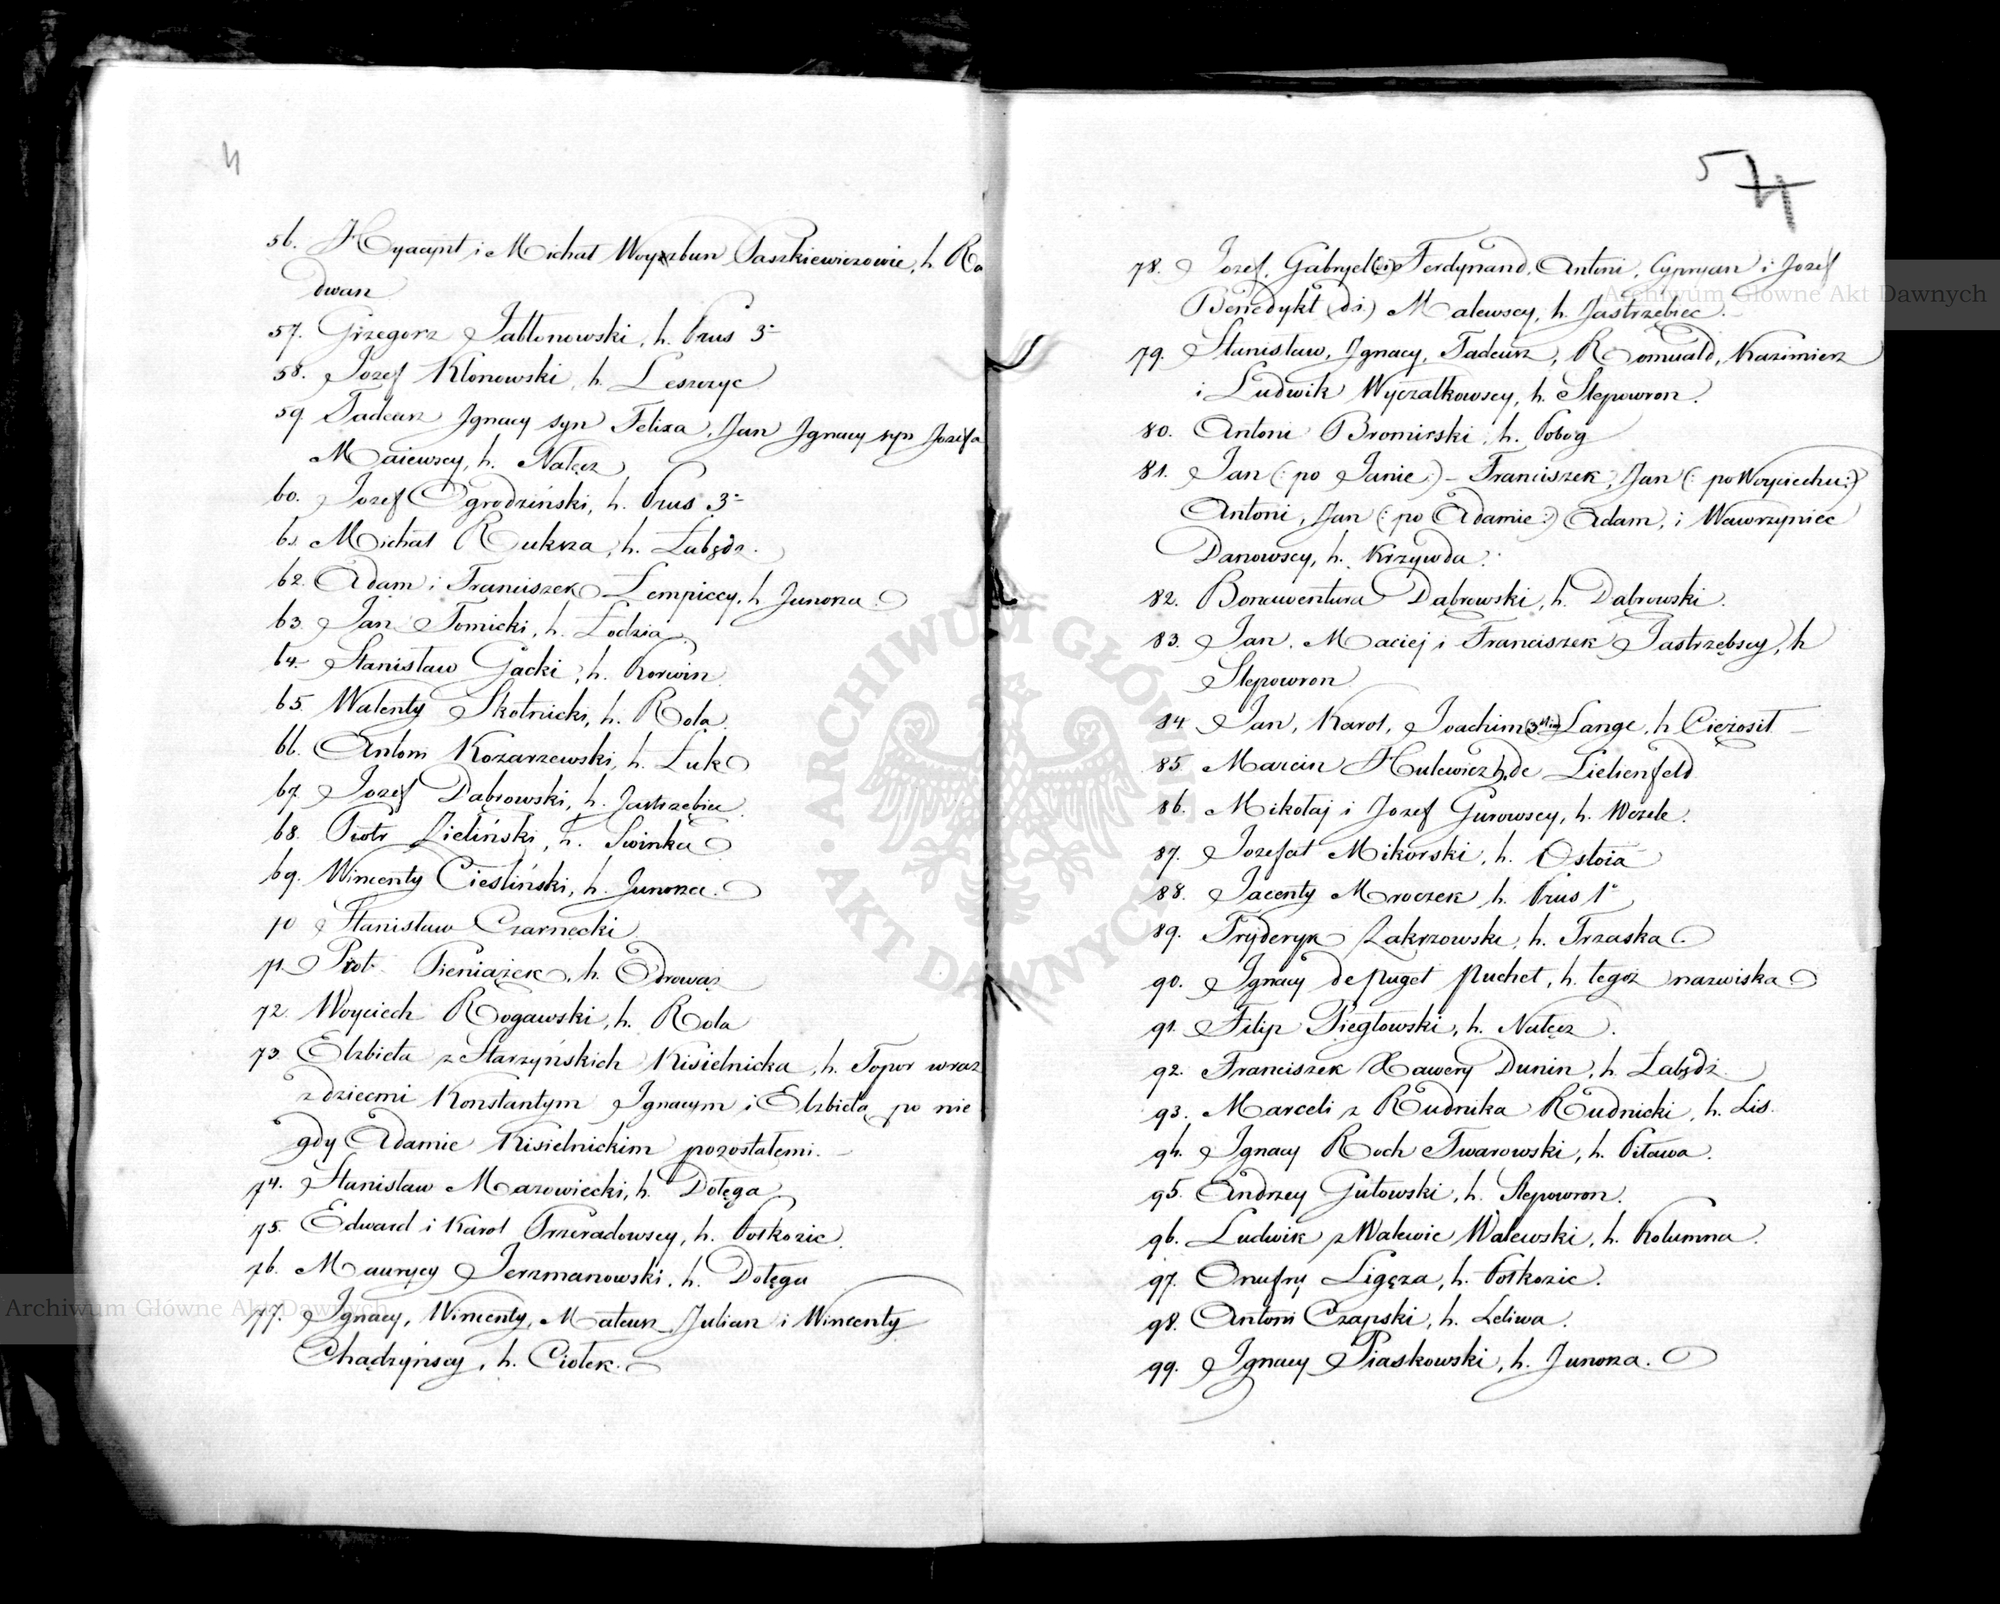 4
56. Hyacynt i Michał Woyzbun Paszkiewiczowie, h. Ra
dwan
57. Grzegorz Jabłonowski, h. Prus 3º
58. Jozef Klonowski, h. Leszczyc
59. Tadeusz Ignacy syn Felixa, Jan Ignacy syn Jozefa
Maiewscy, h. Nałęcz
60. Jozef Ogrodziński, h. Prus 3º
61. Michał Bukza, h. Łabędz.
62. Adam i Franciszek Łempiccy, h. Junosza.
63. Jan Tomicki, h. Łodzia
64. Stanisław Gacki, h. Korwin
65. Walenty Skotnicki, h. Rola.
66. Antoni Kozarzewski, h. Łuk
67. Jozef Dąbrowski, h. Jastrzębiec
68. Piotr Zieliński, h. Swinka
69. Wincenty Ciesliński, h. Junosza.
70 Stanisław Czarnecki
71. Piotr Pieniążek, h. Odrowąż
72. Woyciech Rogawski, h. Rola
73. Elzbieta z Starzyńskich Kisielnicka, h. Topor wraz
z dziecmi Konstantym Ignacym i Elzbietą po nie
gdy Adamie Kisielnickim pozostałemi.
74. Stanisław Mazowiecki, h. Dołęga
75. Edward i Karol Przeradowscy, h. Połkozic
76. Maurycy Jerzmanowski, h. Dołęga
77. Ignacy, Wincenty, Mateusz, Julian i Wincenty
Chądzyńscy, h. Ciołek.
5 4
78. Jozef, Gabryel Ferdynand, Antoni, Cypryan i Jozef
Benedykt Malewscy, h. Jastrzębiec.
79. Stanisław, Ignacy, Tadeusz, Romuald, Kazimierz
i Ludwik Wyczałkowscy, h. Slepowron.
80. Antoni Bromirski, h. Pobog
81. Jan (: po Janie :) – Franciszek, Jan (: po Woyciechu :)
Antoni, Jan (: po Adamie :) Adam, i Wawrzyniec
Danowscy, h. Krzywda.
82. Bonawentura Dąbrowski, h. Dąbrowski.
83. Jan, Maciej i Franciszek Jastrzębscy, h
Slepowron
84. Jan, Karol, Joachim (3 Im) Lange, h. Cieżosił
85. Marcin Hulewicz h. de Lielienfeld
86. Mikołaj i Jozef Gurowscy, h. Wczele.
87. Jozefat Mikorski, h. Ostoia
88. Jacenty Mroczek h. Prus 1º
89. Fryderyk Zakrzowski, h. Trzaska
90. Ignacy de Puget Puchet, h. tegoż nazwiska
91. Filip Pięgłowski, h. Nałęcz.
92. Franciszek Xawery Dunin, h. Łabędź
93. Marceli z Rudnika Rudnicki, h. Lis.
94. Ignacy Roch Twarowski, h. Pilawa.
95. Andrzey Gutowski, h. Slepowron.
96. Ludwik z Walewic Walewski, h. Kolumna.
97. Onufry Ligęza, h. Połkozic.
98. Antoni Czapski, h. Leliwa.
99. Ignacy Piaskowski, h. Junosza.
ARCHIWUM GŁÓWNE AKT DAWNYCH
Archiwum Główne Akt Dawnych
Archiwum Główne Akt Dawnych